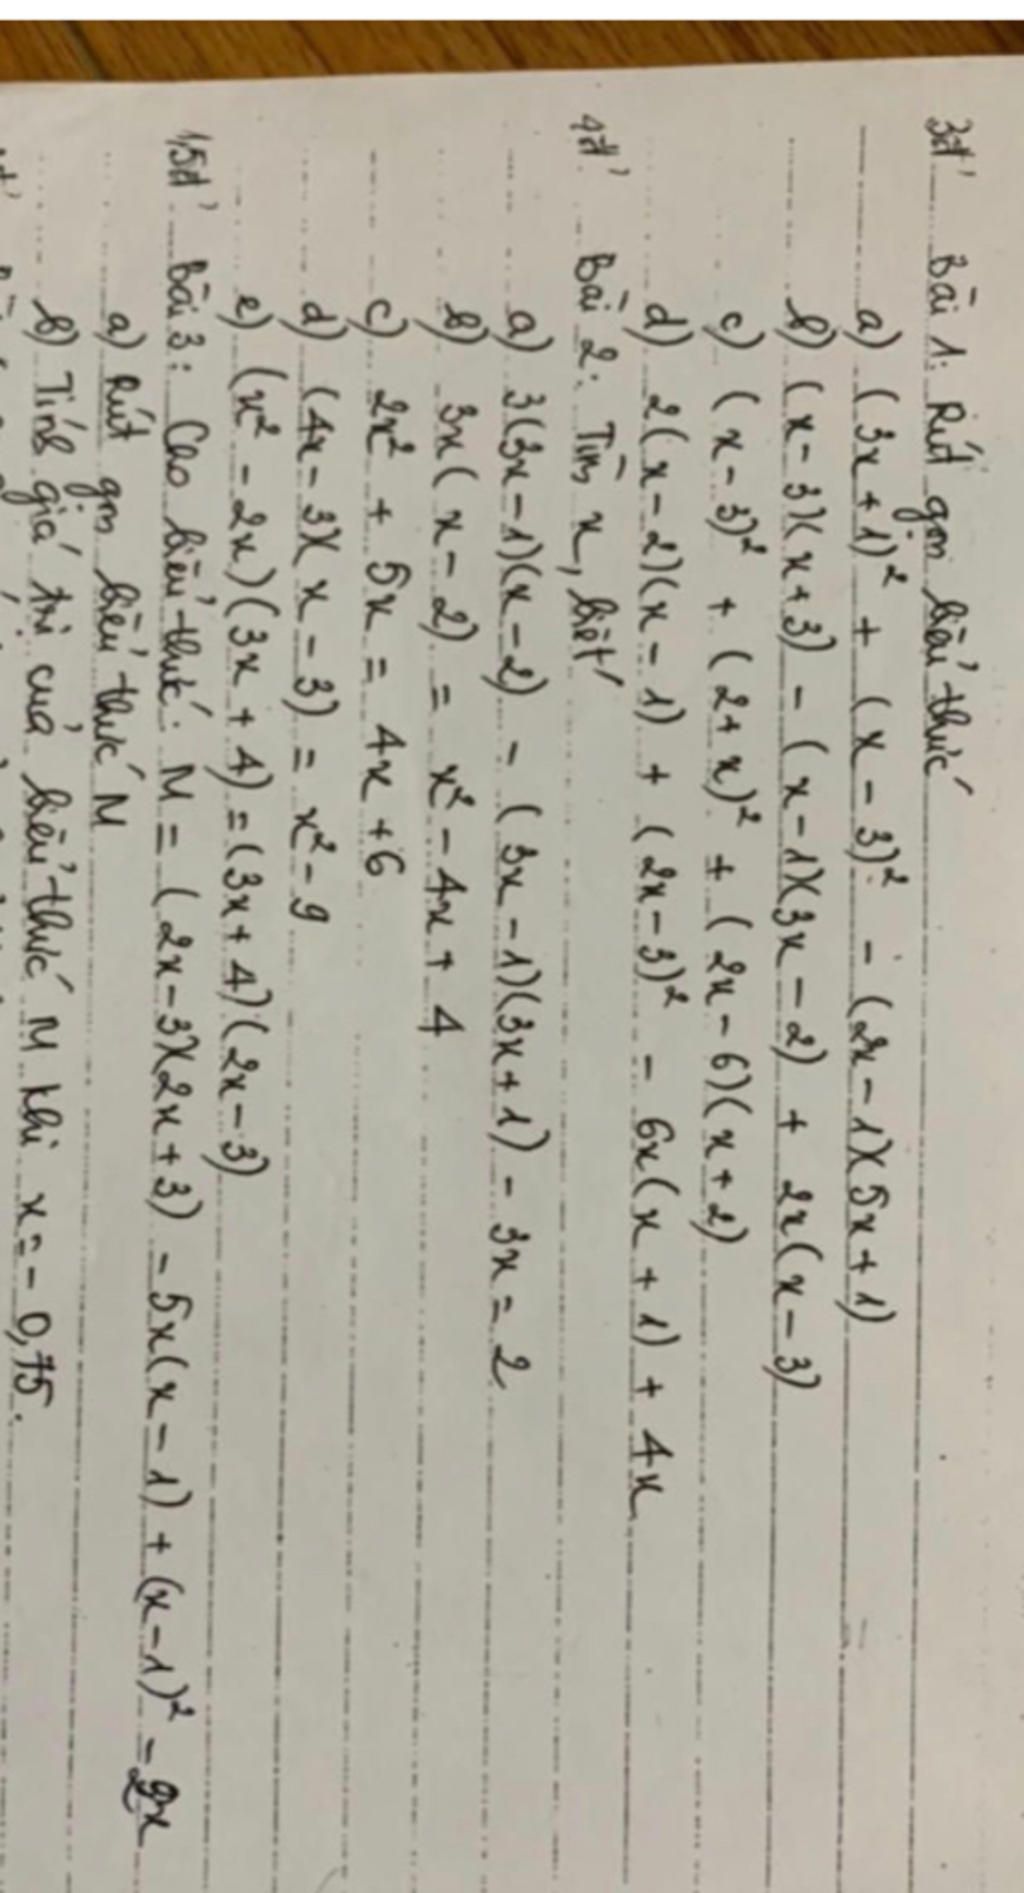 3đ' Bài 1: Rút gọn biểu thức
a) (3x+1)² + (x-3)² - (2x-1)(5x+1)
b) (x-3)(x+3) - (x-1)(3x-2) + 2x(x-3)
c) (x-3)² + (2+x)² + (2x-6)(x+2)
d) 2(x-2)(x-1) + (2x-3)² - 6x(x+1) + 4x
4đ' Bài 2: Tìm x, biết
a) 3(3x-1)(x-2) - (3x-1)(3x+1) - 3x = 2
b) 3x(x-2) = x² - 4x + 4
c) 2x² + 5x = 4x + 6
d) (4x-3)(x-3) = x² - 9
e) (x² - 2x)(3x+4) = (3x+4)(2x-3)
1,5đ' Bài 3: Cho biểu thức: M = (2x-3)(2x+3) - 5x(x-1) + (x-1)² -
a) Rút gọn biểu thức M
b) Tính giá trị của biểu thức M khi x = -0,75.